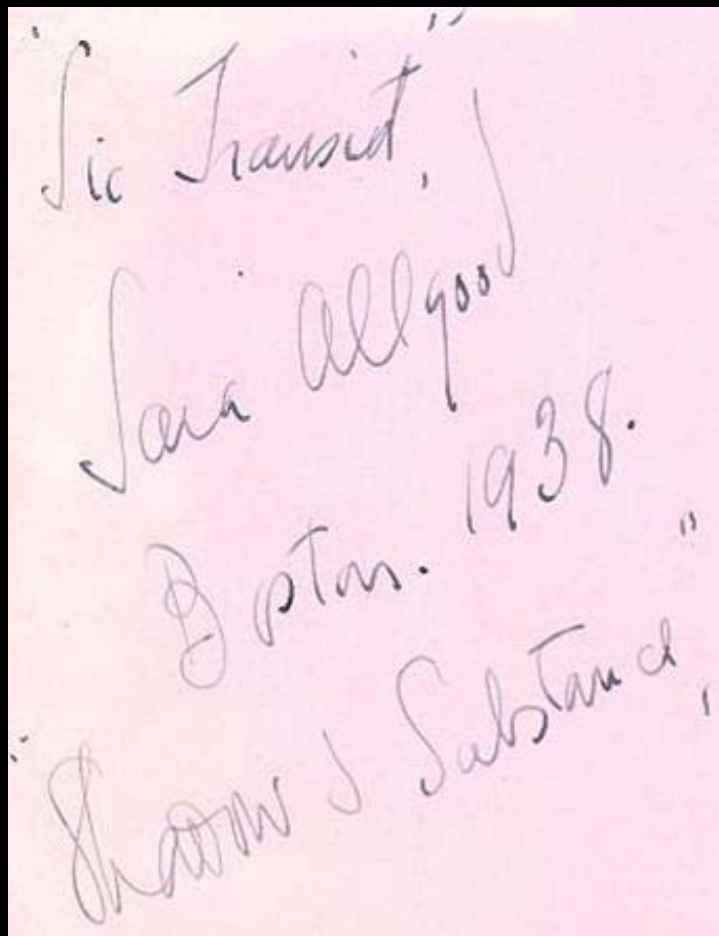 "Sic Transit,"
Sara Allgood
Boston. 1938.
"Shadow & Substance,"